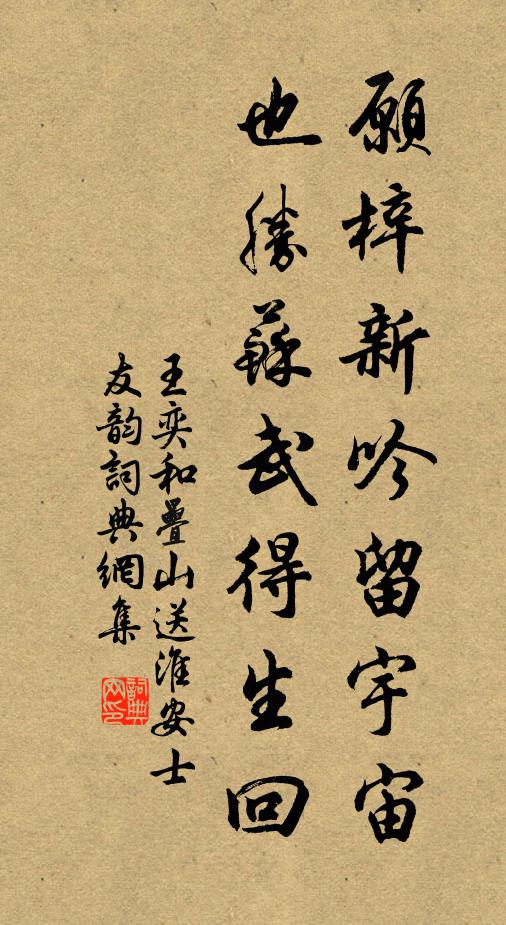 願梓新吟留宇宙
也勝蘇武得生回
王奕和疊山送淮安士
友韵詞典網集
詞典
网印